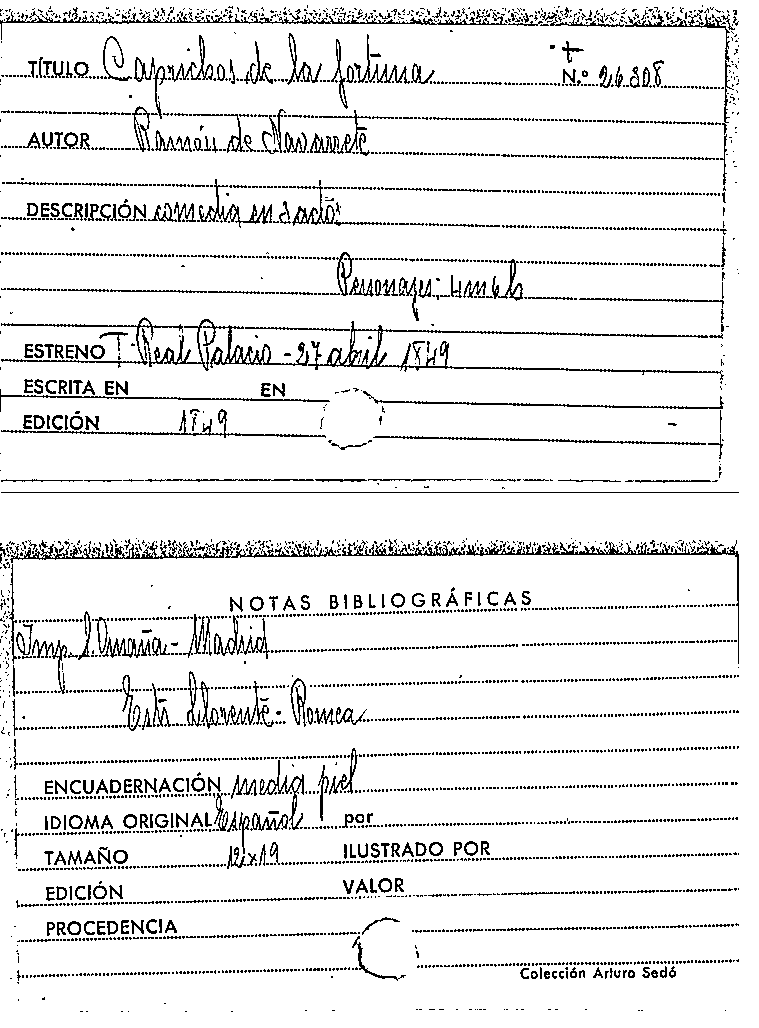 +
TÍTULO Caprichos de la fortuna N.º 26308
AUTOR Ramón de Navarrete
DESCRIPCIÓN comedia en 3 actos
Personajes: 4m 6h
ESTRENO T. Real Palacio - 27 abril 1849
ESCRITA EN EN
EDICIÓN 1849 -
NOTAS BIBLIOGRÁFICAS
Imp. S. Omaña - Madrid
Llorente - Romea
ENCUADERNACIÓN media piel
IDIOMA ORIGINAL Español por
TAMAÑO 12x19 ILUSTRADO POR
EDICIÓN VALOR
PROCEDENCIA
Colección Arturo Sedó